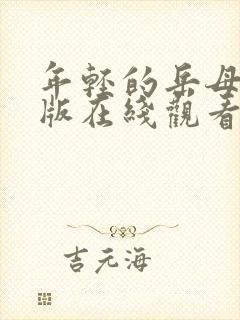 年轻的岳母
版在綫觀看
吉元海